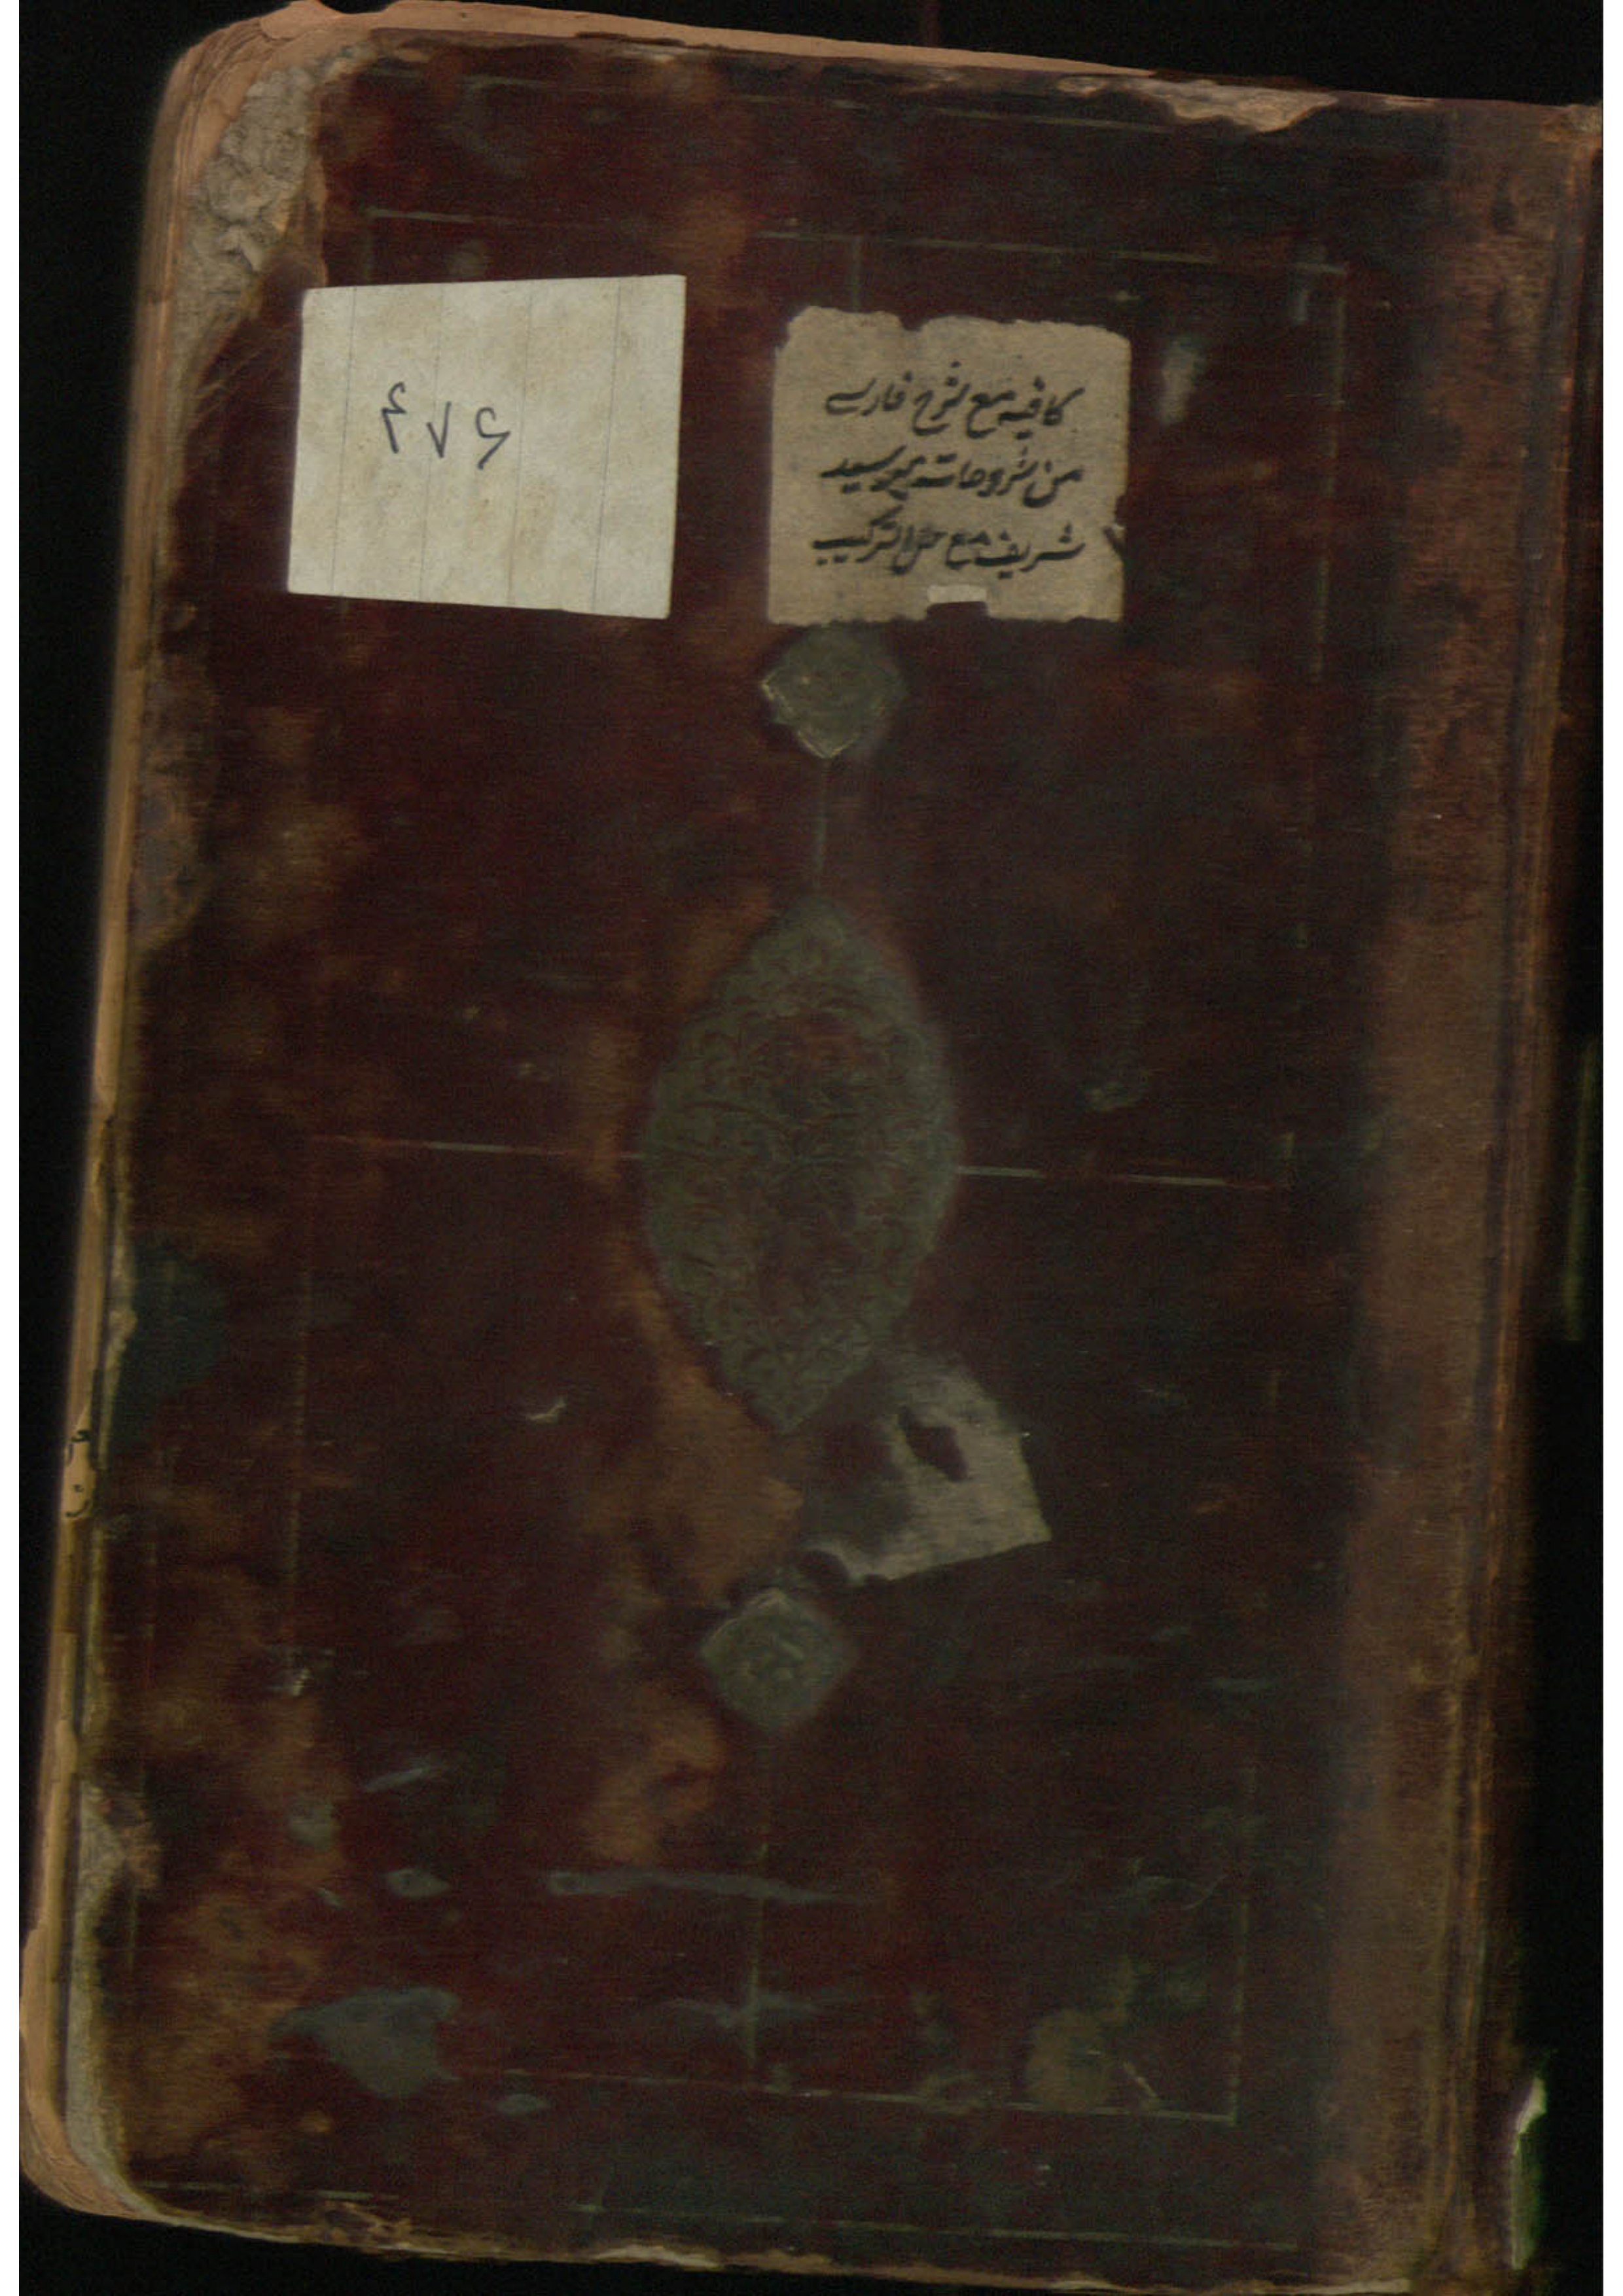 کافیه مع شرح فارسے
من شروحاتہ میر سید
شریف مع حل الترکیب
۴۷۶